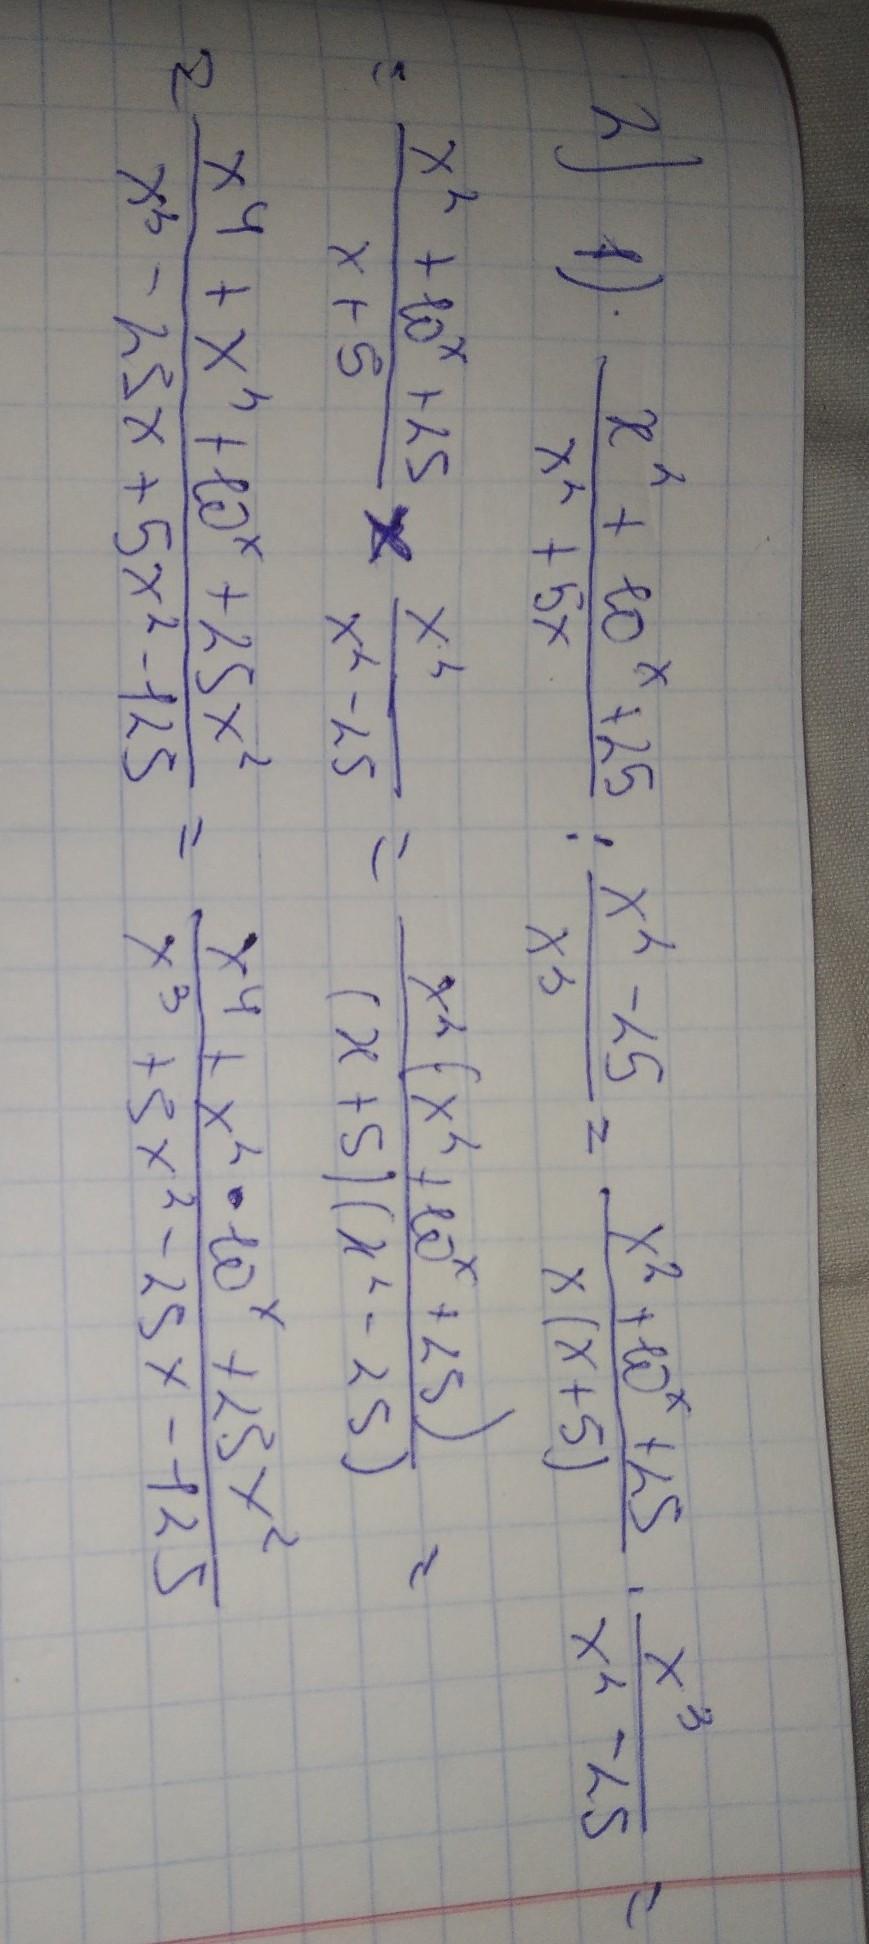 2) 1). \frac{x^2 + 10^x + 25}{x^2 + 5x} : \frac{x^2 - 25}{x^3} = \frac{x^2 + 10^x + 25}{x(x+5)} \cdot \frac{x^3}{x^2 - 25} =
= \frac{x^2 + 10^x + 25}{x + 5} × \frac{x^2}{x^2 - 25} = \frac{x^2(x^2 + 10^x + 25)}{(x+5)(x^2 - 25)} =
= \frac{x^4 + x^2 + 10^x + 25x^2}{x^3 - 25x + 5x^2 - 125} = \frac{x^4 + x^2 \cdot 10^x + 25x^2}{x^3 + 5x^2 - 25x - 125}